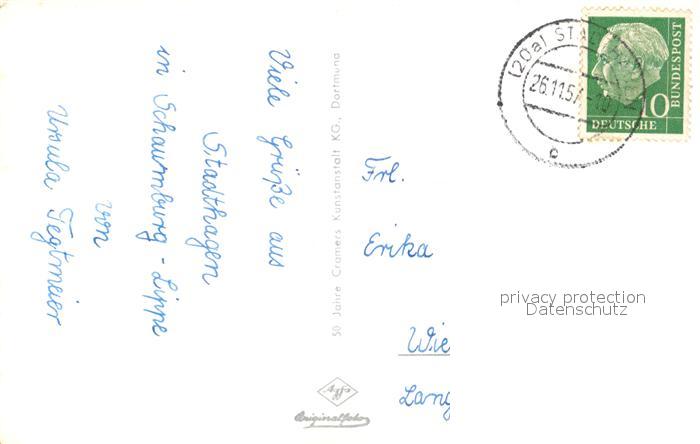 Viele Grüße aus
Stadthagen
in Schaumburg-Lippe
von
Ursula Tegtmeier
50 Jahre Cramers Kunstanstalt KG., Dortmund
Agfa
Originalfoto
(20a) STA
26.11.57
c
10
BUNDESPOST
DEUTSCHE
Frl.
Erika
Wie
Lang
privacy protection
Datenschutz